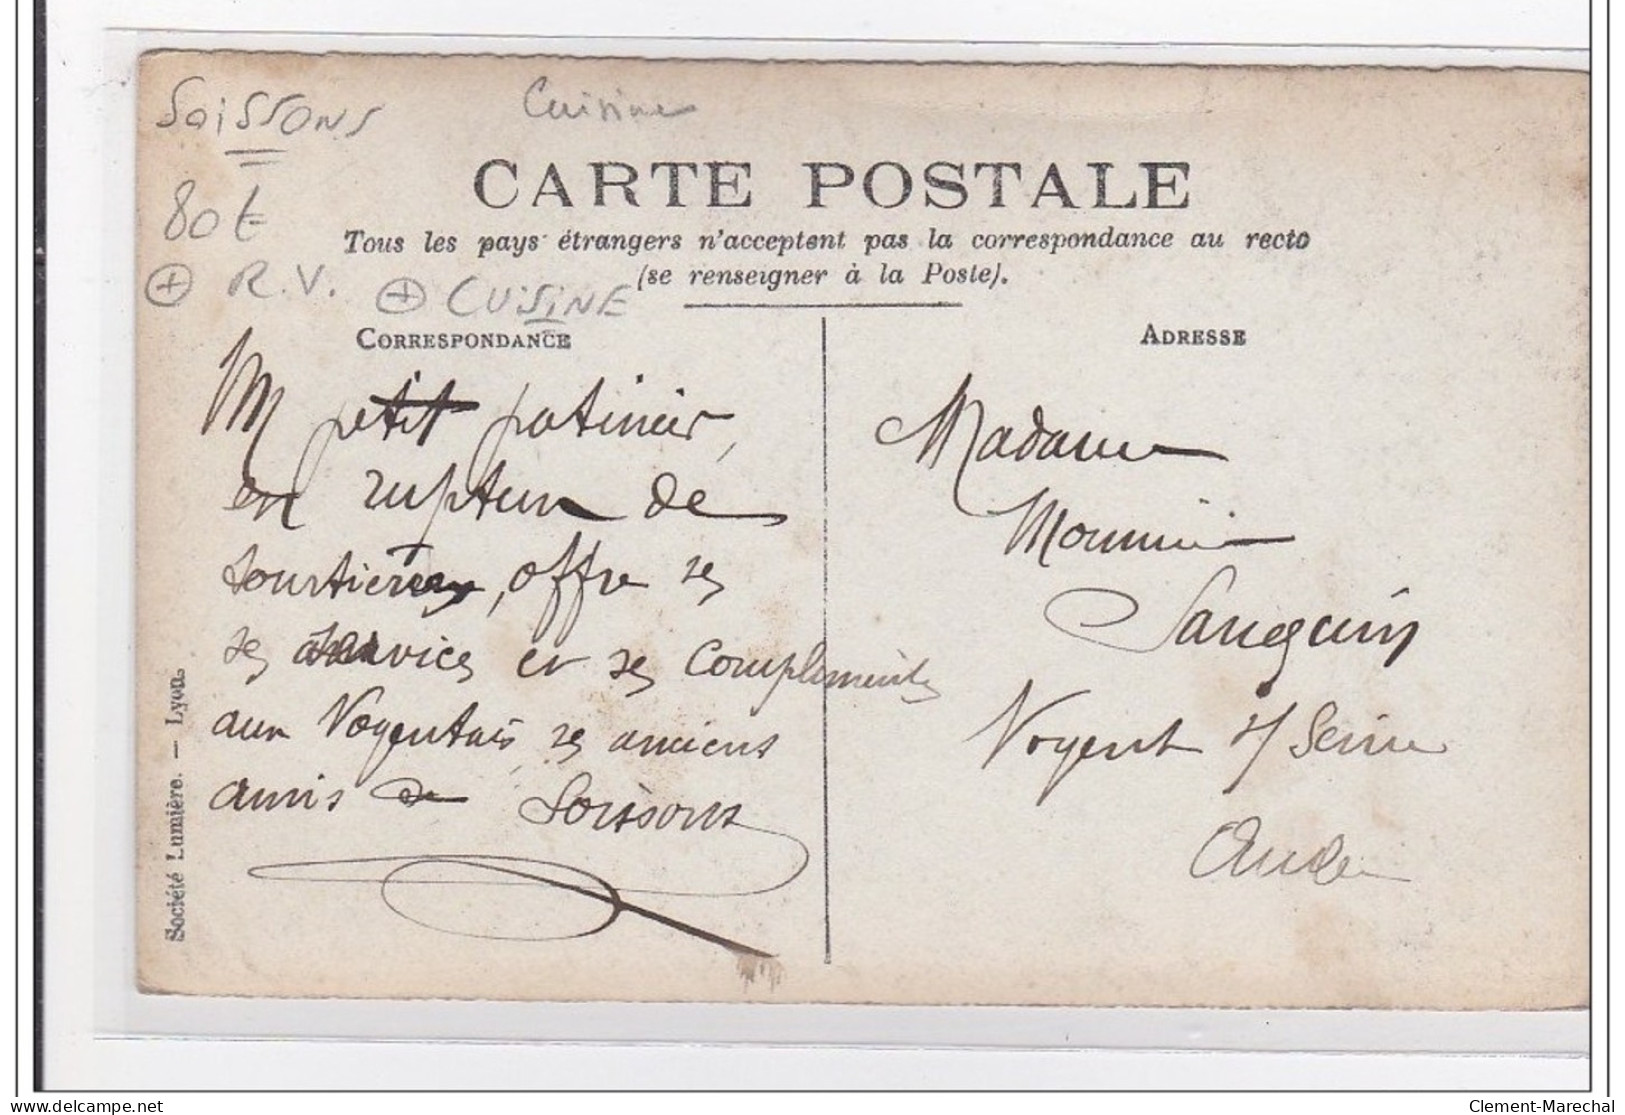 Soissons
Cuisine
CARTE POSTALE
80 €
Tous les pays étrangers n'acceptent pas la correspondance au recto
(se renseigner à la Poste).
+ R.V. + CUISINE
CORRESPONDANCE
ADRESSE
Un petit patinier,
en rupture de
, offre ses
ses services et ses compliments
aux Nogentais, ses anciens
amis de Soissons
Madame
Sanguin
Nogent s/ Seine
Aube
Société Lumière. — Lyon.
Clement-Marechal